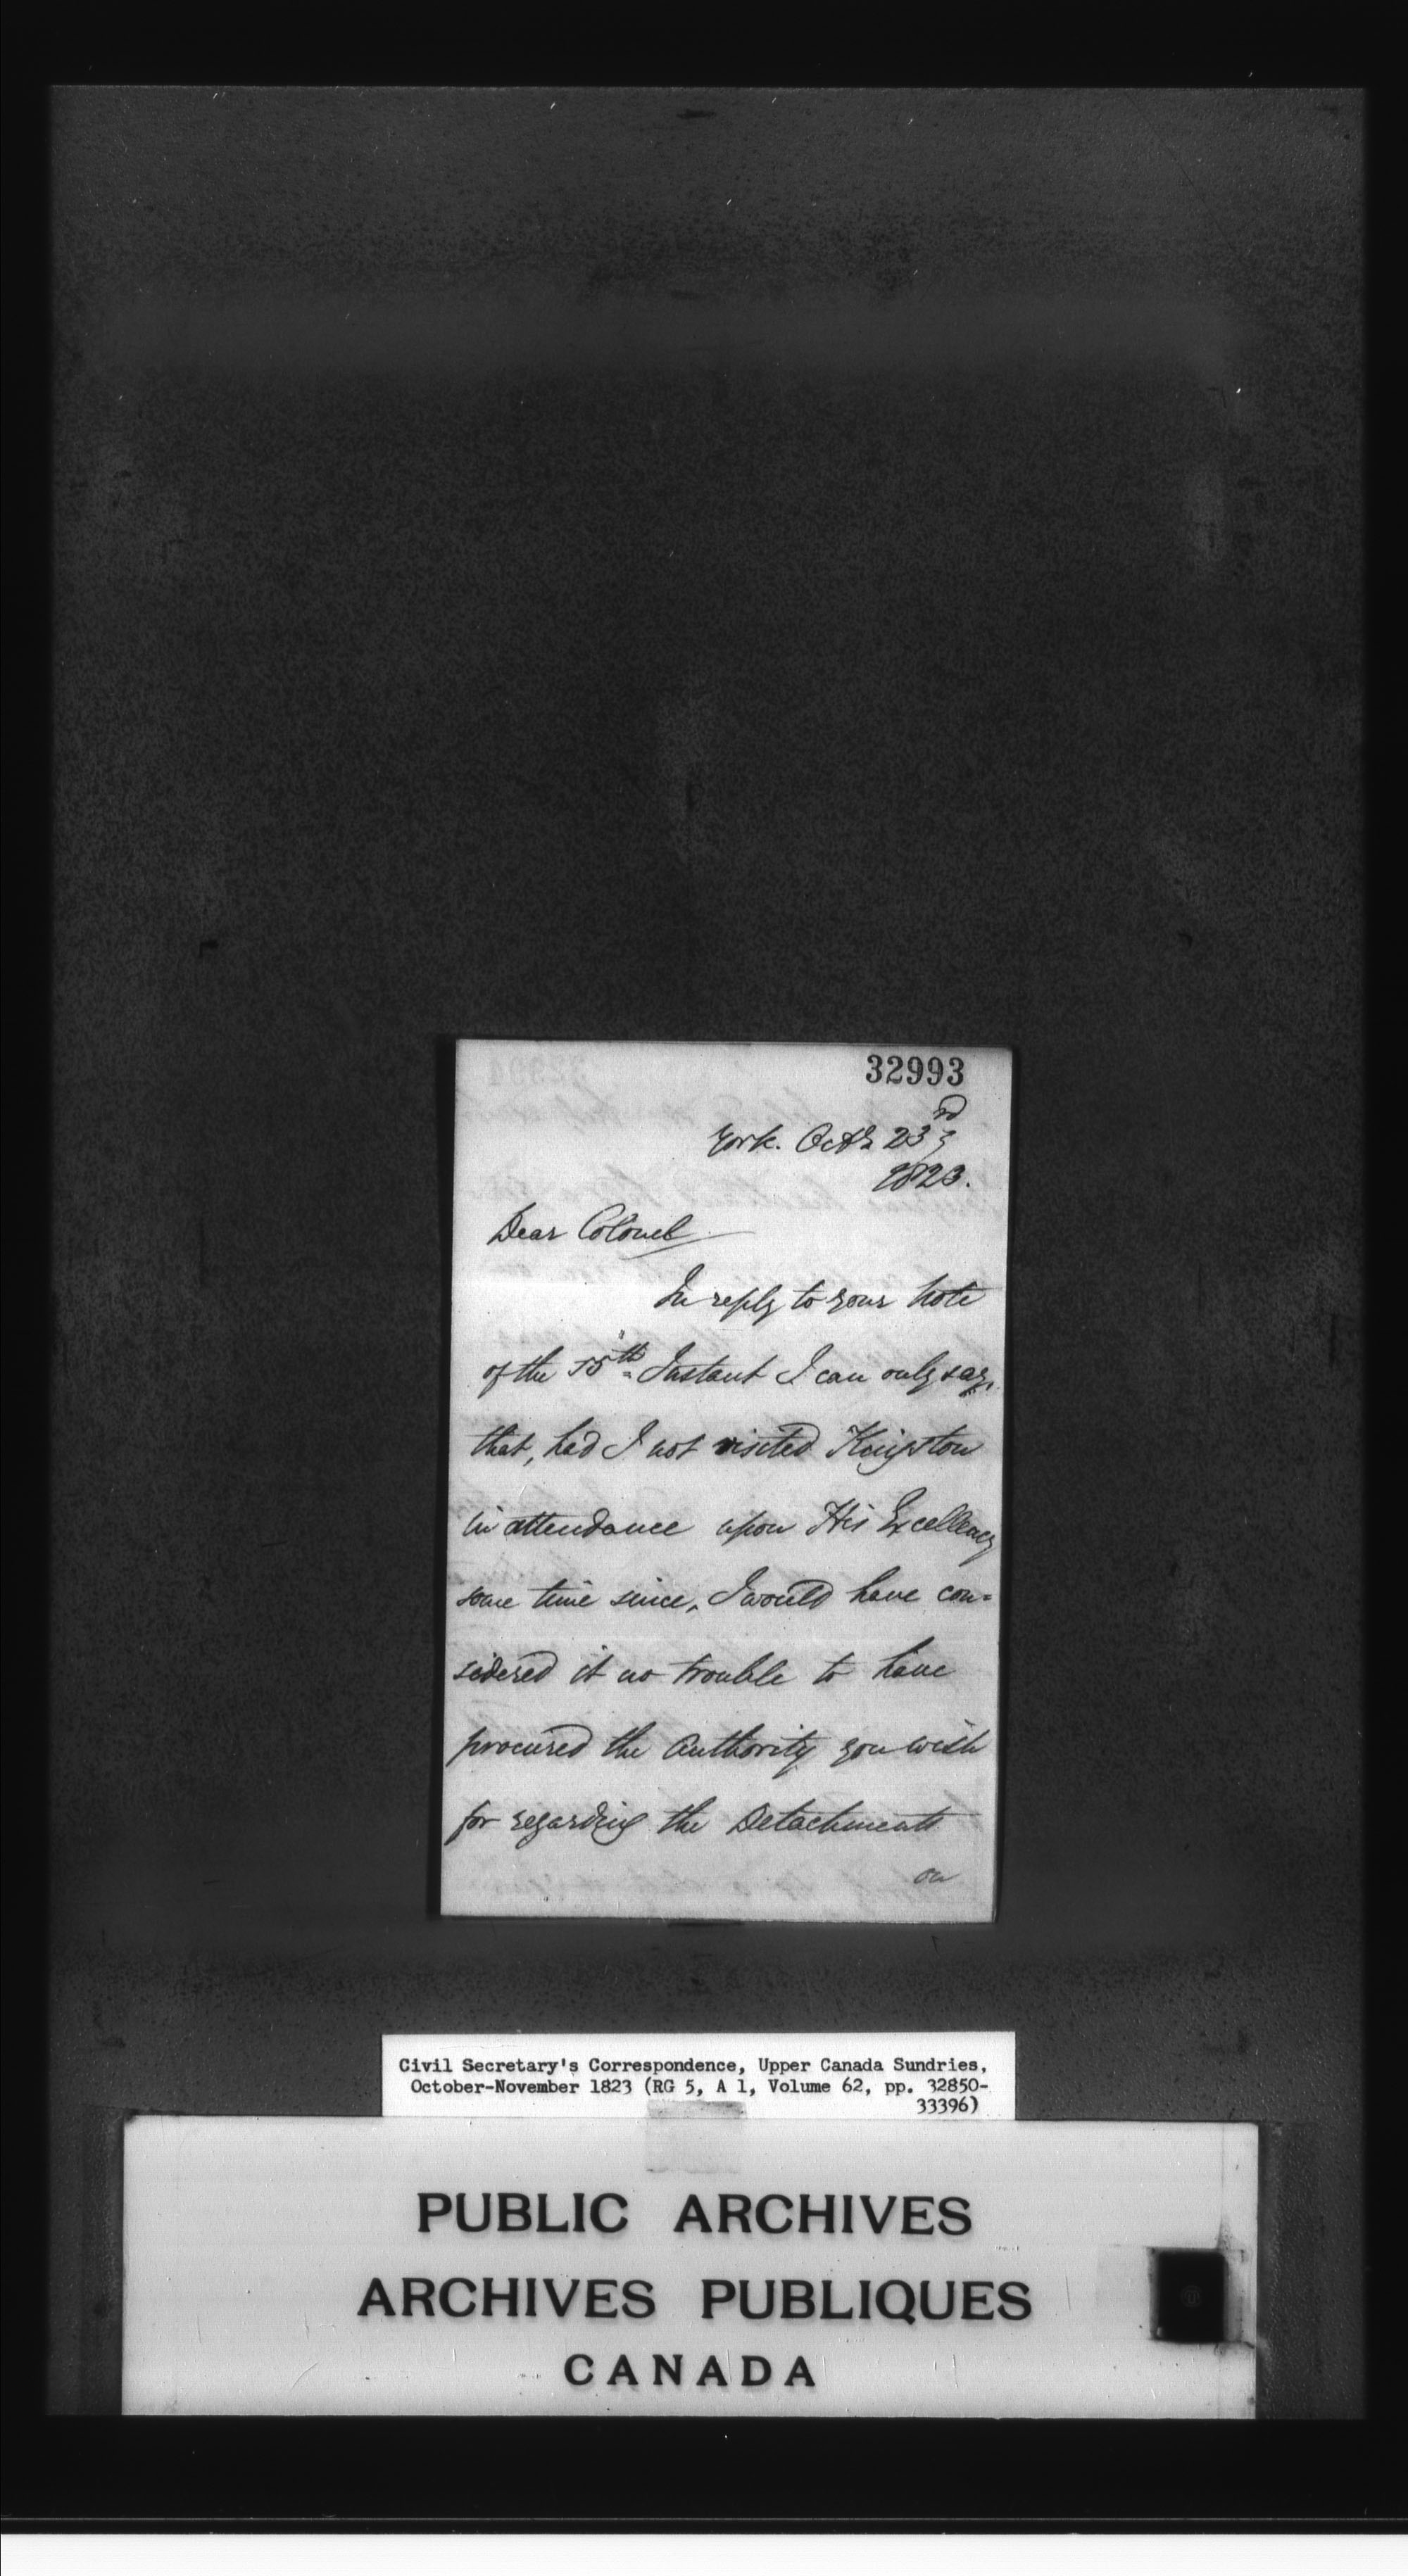 32993
York. Octr 23rd
1823.
Dear Colonel
In reply to your note
of the 15th Instant I can only say,
that, had I not visited Kingston
in attendance upon His Excellency
some time since, I would have con=
sidered it no trouble to have
procured the Authority you wish
for regarding the Detachments
on
Civil Secretary's Correspondence, Upper Canada Sundries,
October-November 1823 (RG 5, A 1, Volume 62, pp. 32850-
33396)
PUBLIC ARCHIVES
ARCHIVES PUBLIQUES
CANADA